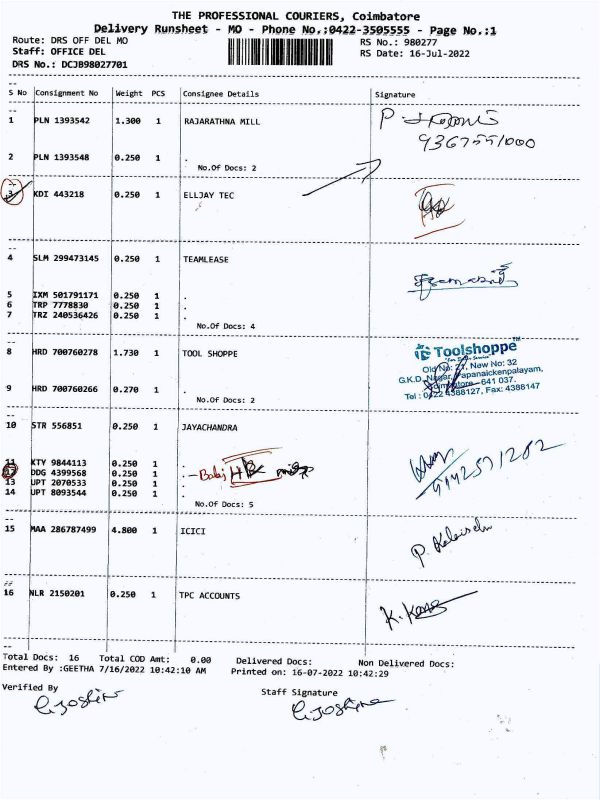 THE PROFESSIONAL COURIERS, Coimbatore
Delivery Runsheet - MO - Phone No.:0422-3505555 - Page No.:1
Route: DRS OFF DEL MO RS No.: 980277
Staff: OFFICE DEL RS Date: 16-Jul-2022
DRS No.: DCJB98027701
S No Consignment No Weight PCS Consignee Details Signature
1 PLN 1393542 1.300 1 RAJARATHNA MILL
9367551000
2 PLN 1393548 0.250 1 .
No.Of Docs: 2
3 KDI 443218 0.250 1 ELLJAY TEC
4 SLM 299473145 0.250 1 TEAMLEASE
5 IXM 501791171 0.250 1 .
6 TRP 7778830 0.250 1 .
7 TRZ 240536426 0.250 1 .
No.Of Docs: 4
8 HRD 700760278 1.730 1 TOOL SHOPPE
Toolshoppe™
Old No: 21, New No: 32
G.K.D. Nagar, Papanaickenpalayam,
Coimbatore - 641 037.
Tel : 0422 4388127, Fax: 4388147
9 HRD 700760266 0.270 1 .
No.Of Docs: 2
10 STR 556851 0.250 1 JAYACHANDRA
11 KTY 9844113 0.250 1 .
12 DDG 4399568 0.250 1 .
13 UPT 2070533 0.250 1 .
14 UPT 8093544 0.250 1 .
No.Of Docs: 5
15 MAA 286787499 4.800 1 ICICI
##
16 NLR 2150201 0.250 1 TPC ACCOUNTS
Total Docs: 16 Total COD Amt: 0.00 Delivered Docs: Non Delivered Docs:
Entered By :GEETHA 7/16/2022 10:42:10 AM Printed on: 16-07-2022 10:42:29
Verified By Staff Signature